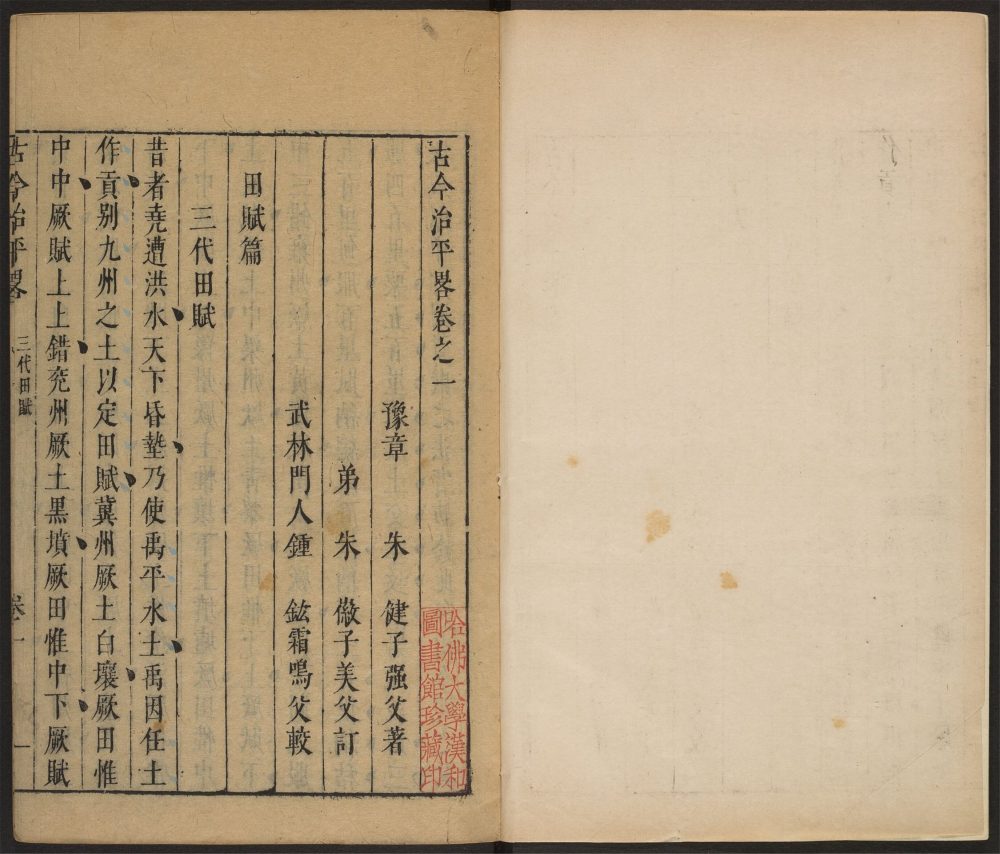 古今治平畧卷之一
豫章　朱　健子强父著
弟　朱　徽子美父訂
武林門人鍾　鉉霜鳴父較
田賦篇
三代田賦
昔者堯遭洪水天下昏墊乃使禹平水土禹因任土
作貢别九州之土以定田賦冀州厥土白壤厥田惟
中中厥賦上上錯兖州厥土黒墳厥田惟中下厥賦
古今治平畧　三代田賦　卷一　一
哈佛大學漢和
圖書館珍藏印